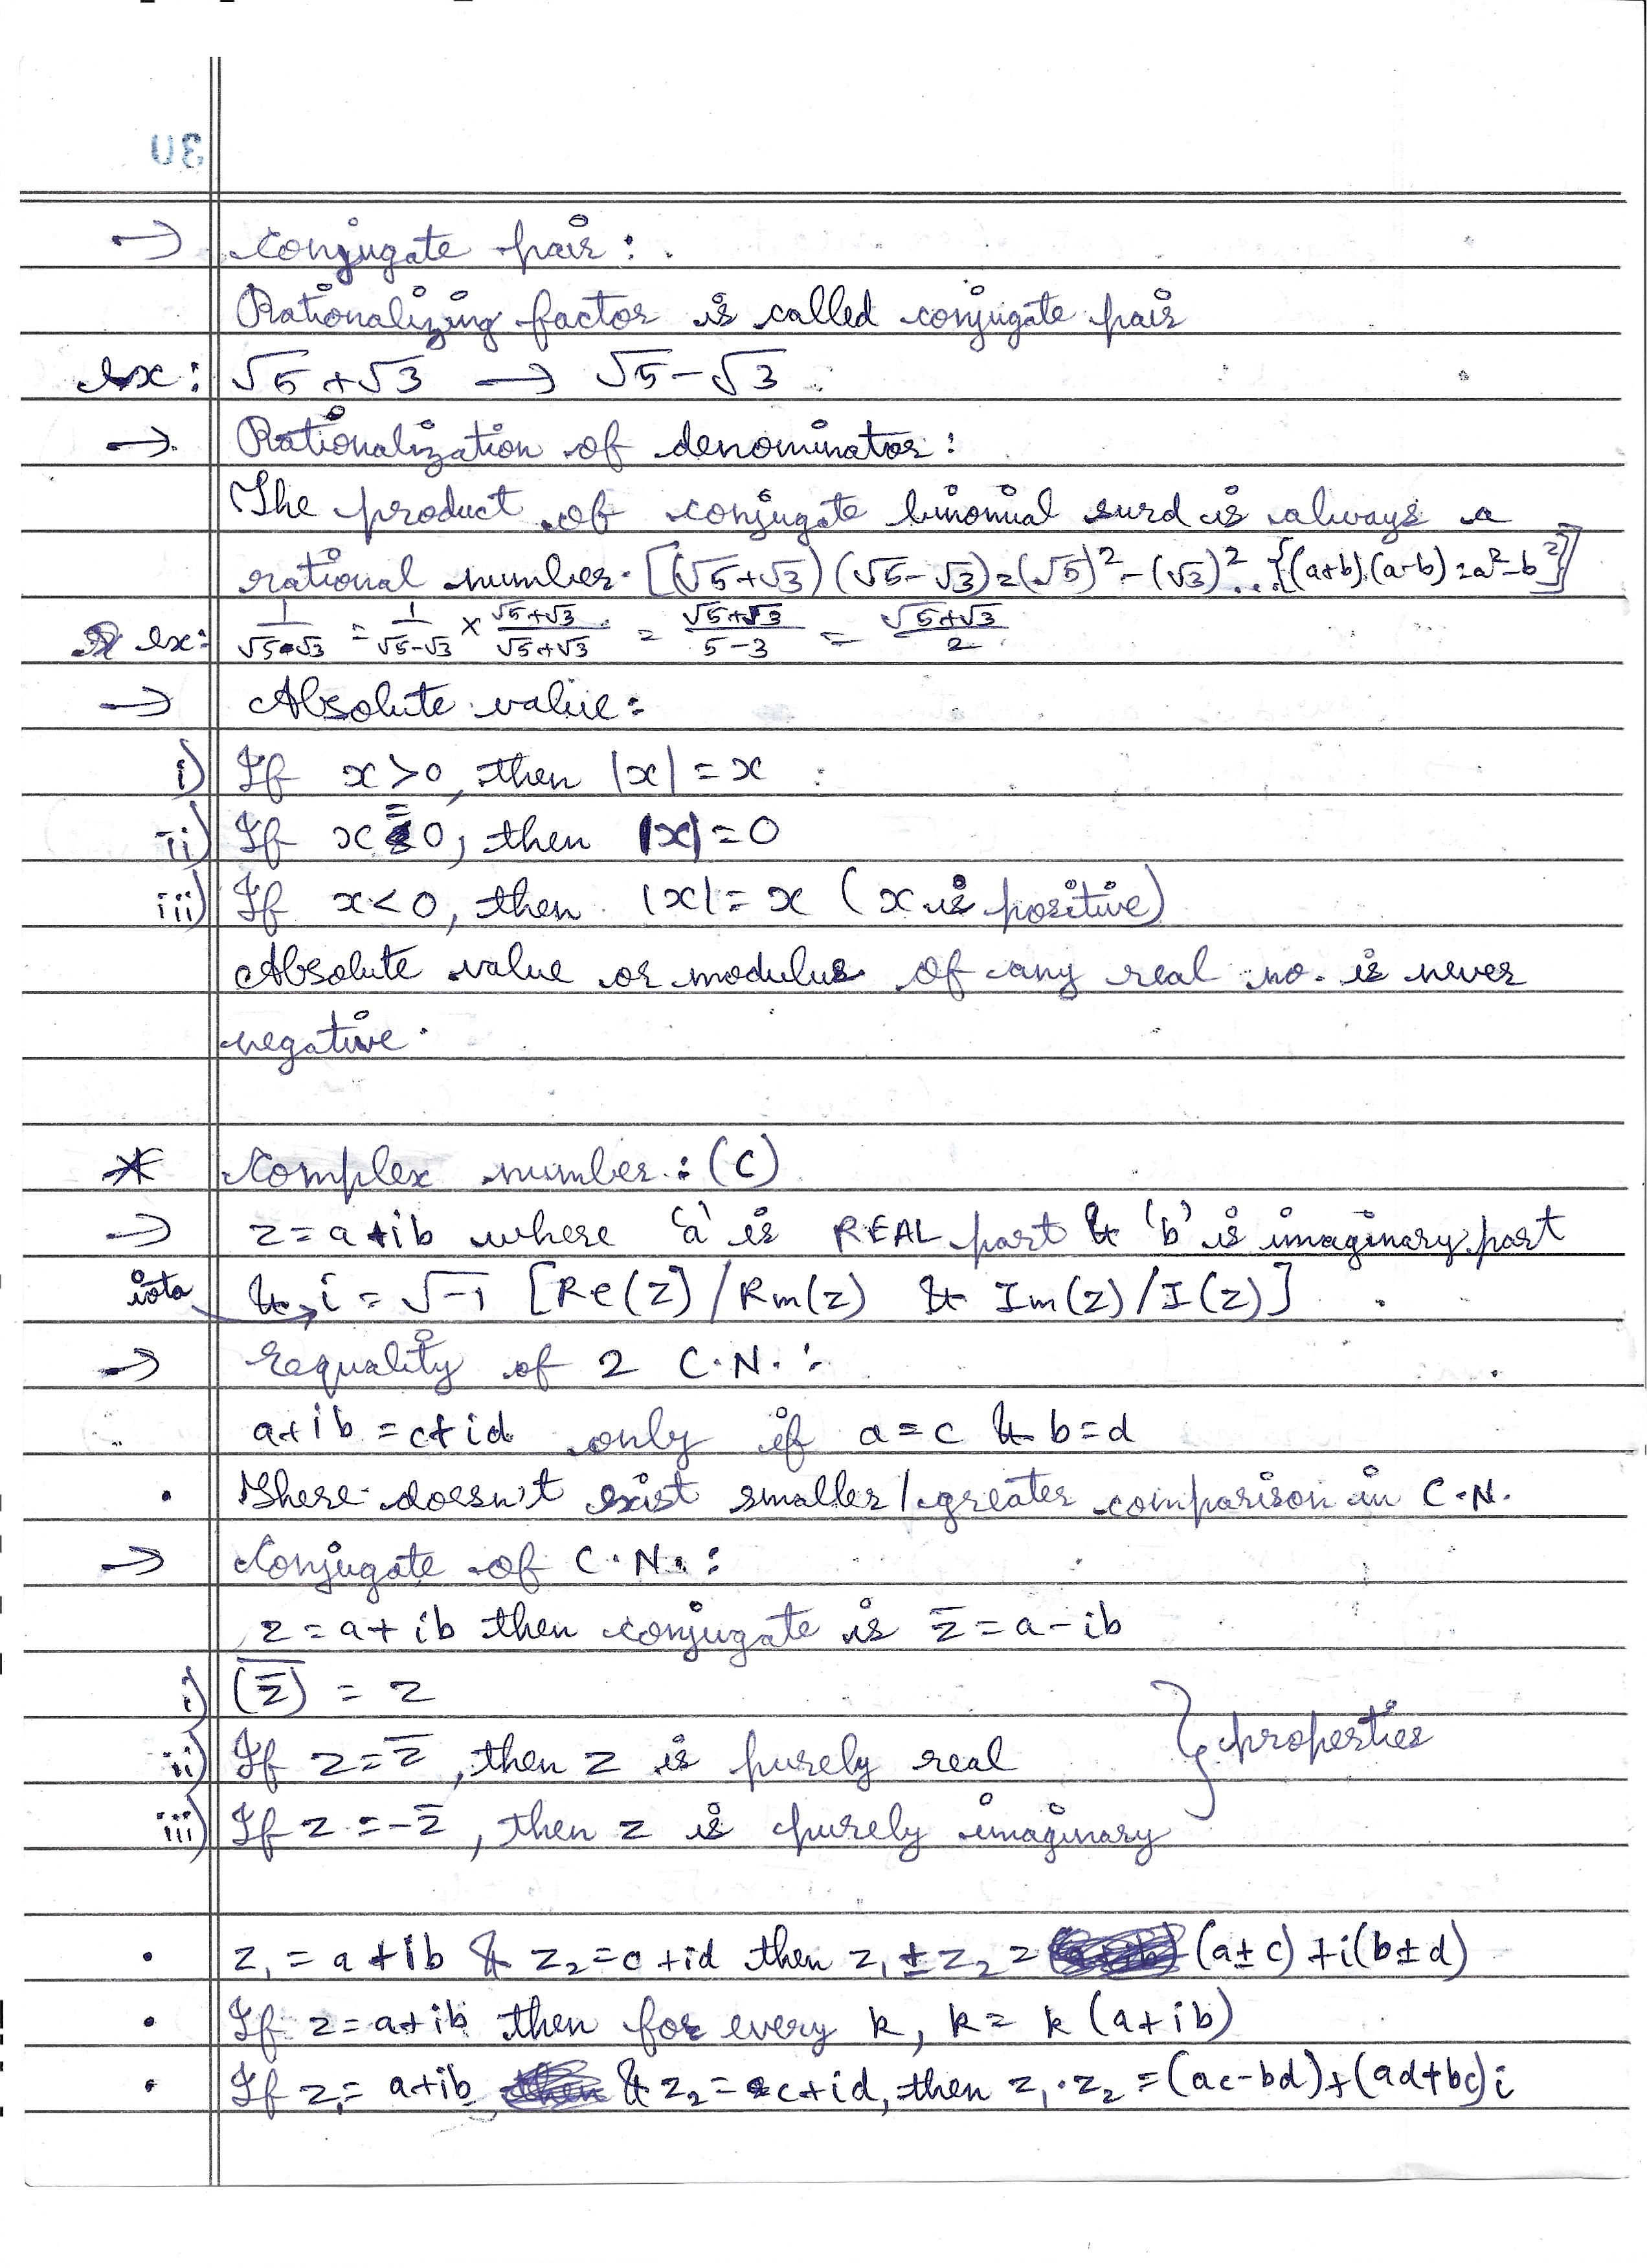 → Conjugate pair:
Rationalizing factor is called conjugate pair
ex: √5+√3 → √5-√3
→ Rationalization of denominator:
The product of conjugate binomial surd is always a
rational number. [(√5+√3)(√5-√3)=(√5)²-(√3)²..{(a+b).(a-b)=a²-b²}]
ex: 1/√5-√3 = 1/√5-√3 × √5+√3/√5+√3 = √5+√3/5-3 = √5+√3/2
→ Absolute value:
i) If x>0, then |x|=x
ii) If x=0, then |x|=0
iii) If x<0, then |x|=x (x is positive)
Absolute value or modulus of any real no. is never
negative.
* Complex number: (C)
→ z=a+ib where 'a' is REAL part & 'b' is imaginary part
iota & i=√-1 [Re(z)/Rm(z) & Im(z)/I(z)]
→ Equality of 2 C.N.:
a+ib=c+id only if a=c & b=d
• There doesn't exist smaller/greater comparison in C.N.
→ Conjugate of C.N.:
z=a+ib then conjugate is z̄=a-ib
i) (z̄)̅ = z
ii) If z=z̄, then z is purely real } properties
iii) If z=-z̄, then z is purely imaginary
• z₁=a+ib & z₂=c+id then z₁±z₂= (a±c)+i(b±d)
• If z=a+ib then for every k, k= k(a+ib)
• If z₁= a+ib & z₂=c+id, then z₁.z₂=(ac-bd)+(ad+bc)i